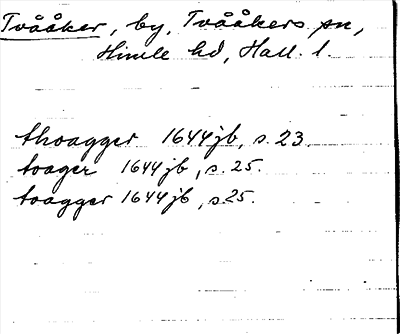 Tvååker, by, Tvååkers sn,
Himle hd, Hall. l.
thoagger 1644 jb, s. 23.
toager 1644 jb, s. 25.
toagger 1644 jb, s. 25.